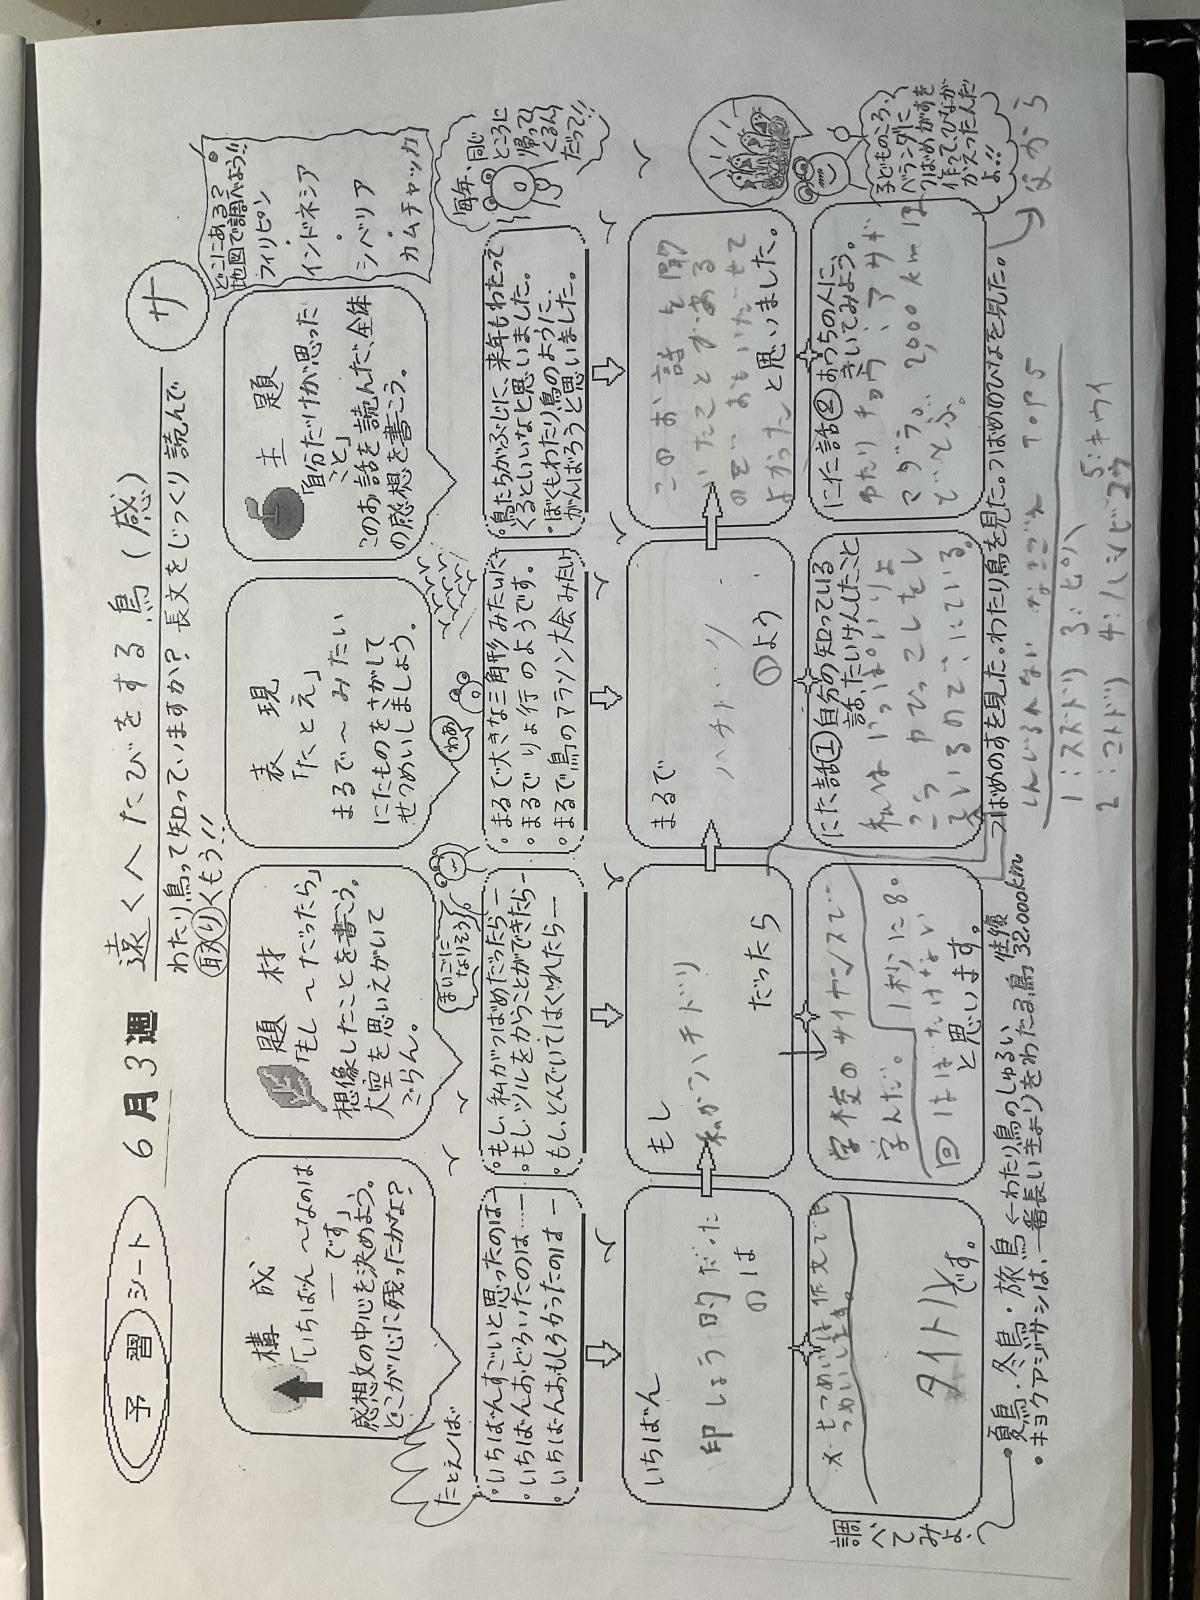 予習シート 6月3週 遠くへたびをする鳥(感) サ
わたり鳥って知っていますか？長文をじっくり読んで
取りくもう!!
どこにある？
地図で調べよう!!
フィリピン
・インドネシア
・シベリア
・カムチャッカ
構成
「いちばん〜なのは
―です」
感想文の中心を決めよう。
どこが心に残ったかな？
題材
「もし〜だったら」
想像したことを書こう。
大空を思いえがいて
ごらん。
表現
「たとえ」
まるで〜みたい
にたものをさがして
せつめいしましょう。
主題
「自分だけが思った
こと」
このお話を読んだ、全体
の感想を書こう。
たとえば
まいごに
なりそう
わあ
毎年、同じ
ところに
帰って
くるん
だって!!
・いちばんすごいと思ったのは―
・いちばんおどろいたのは……
・いちばんおもしろかったのは―
・もし、私がつばめだったら―
・もし、ツルをかうことができたら―
・もし、とんでいてはぐれたら―
・まるで大きな三角形みたいに
・まるでりょ行のようです。
・まるで鳥のマラソン大会みたい
・鳥たちがぶじに、来年もわたって
くるといいなと思いました。
・ぼくもわたり鳥のように、
がんばろうと思いました。
いちばん
印しょう的だった
のは
もし
私がハチドリ
だったら
まるで
ハチドリ
①よう
このお話を聞
いたことがある
ので、おもいだせて
よかったと思いました。
子どものころ、
ベランダに
つばめがすを
作ってひなが
かえったんだ
よ!!
調べてみよ
タイトルとです。
学校のサイエンスで
学んだ。1秒に80
回はばたけない
と思います。
にた話①自分の知っている
話、たいけんしたこと
私はいっぱいりょ
こうやひっこしをし
ているので、にている。
にた話②おうちの人に、
きいてみよう。
わたりチョウ：アサギ
マダラ。2,000kmほ
どとぶ。
・夏鳥・冬鳥・旅鳥←わたり鳥のしゅるい
・キョクアジサシは、一番長いきょりをわたる鳥 往復32,000km
つばめのすを見た。わたり鳥を見た。つばめのひなを見た。
父から
しんじられないなきごえ TOP5
1：スズドリ 3：ピパ
2：コトドリ 4：ハシビロコウ 5：キウイ